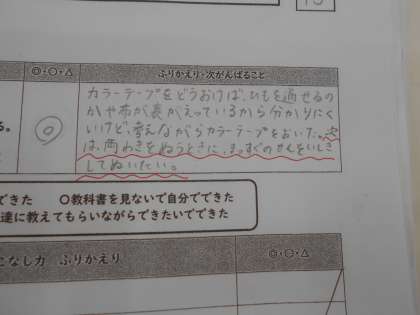 ◎・○・△ ふりかえり・次がんばること
カラーテープをどうおけば、ひもを通せるの
かや布が裏がえっているから分かりにく
る。 ◎ いけど、考えながらカラーテープをおいた。次
は、両わきをぬうときに、まっすぐのせんをいしき
してぬいたい。
できた ○教科書を見ないで自分でできた
達に教えてもらいながらできたいでできた
こなし力 ふりかえり ◎・○・△